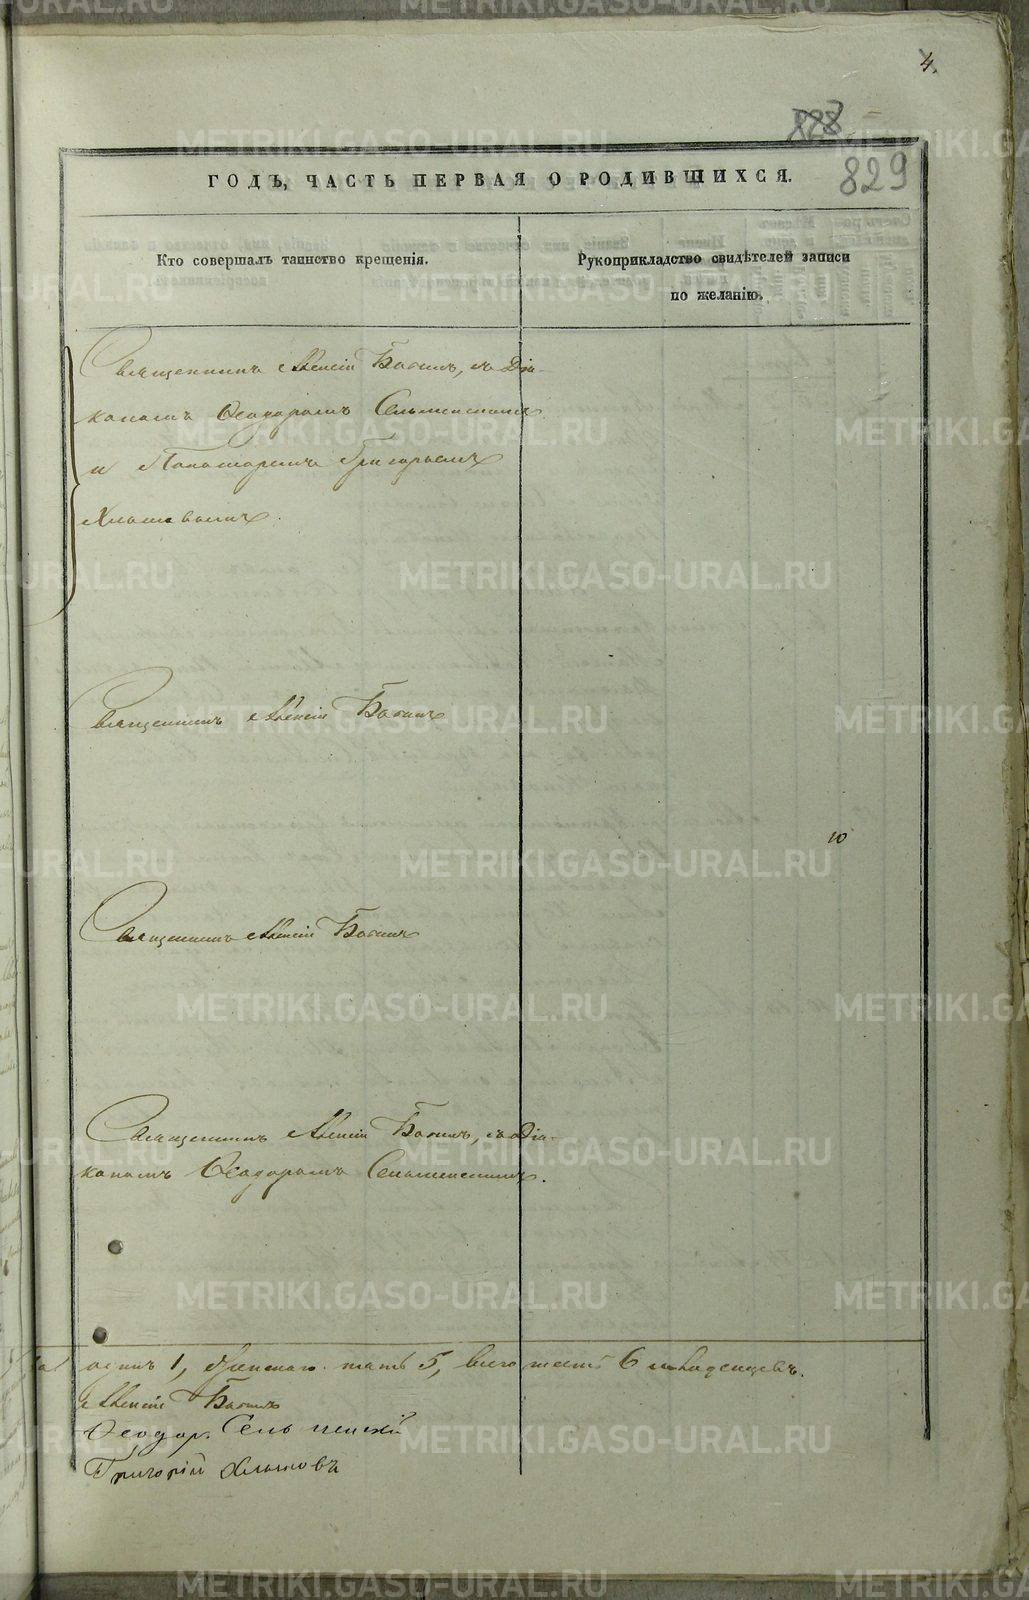 4.
828
829
ГОДЪ, ЧАСТЬ ПЕРВАЯ О РОДИВШИХСЯ.
Кто совершалъ таинство крещенія.
Рукоприкладство свидѣтелей записи
по желанію.
Священникъ Алексій Бабинъ, съ Діа-
кономъ Ѳеодоромъ
и Пономаремъ Григорьемъ
Хлыновымъ.
Священникъ Алексій Бабинъ
10
Священникъ Алексій Бабинъ
Священникъ Алексій Бабинъ, съ Діа-
кономъ Ѳеодоромъ
одинъ 1, Женскаго пять 5, всего шесть 6 младенцевъ.
Алексій Бабинъ
Ѳеодоръ
Григорій Хлыновъ
METRIKI.GASO-URAL.RU